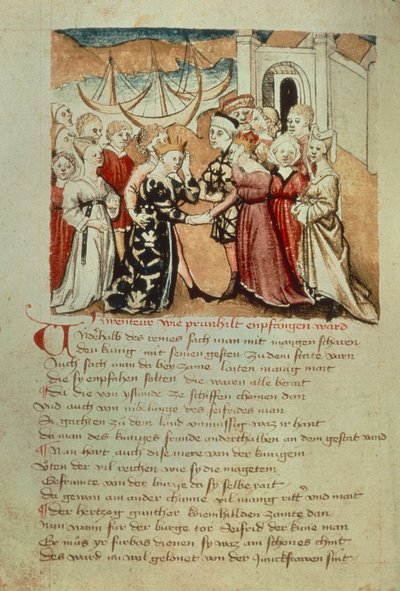 Abenteure wie prunhilt enpfangen ward
Anderhalb des reines sach man mit mangen scharen
den kunig mit seinen gesten zu dem state varn
Auch sach man da bey zame laiten manig mait
die sy enpfahen solten die waren alle berait
Du die von yslande zu schiffen chomen dan
Vnd auch von nibelunge des seifrides man
Si gachten zu dem land vnmussig waz ir hant
da man des kuniges frunde anderthalben an dem gestat vand
Nan hort auch dise mere von der kunigein
Vten der vil reichen wie sy die magetein
Gefrumte von der burge da sy selbe rait
da gewan an ander chunne vil manig ritter vnd mait
der hertzog gunther kriemhillden zamte dan
nun wain für der burge tor Seifrid der kune man
Er mus yr furbas dienen sy waz ain schones chint
des ward im wol gelonet von der junckfrawen sint